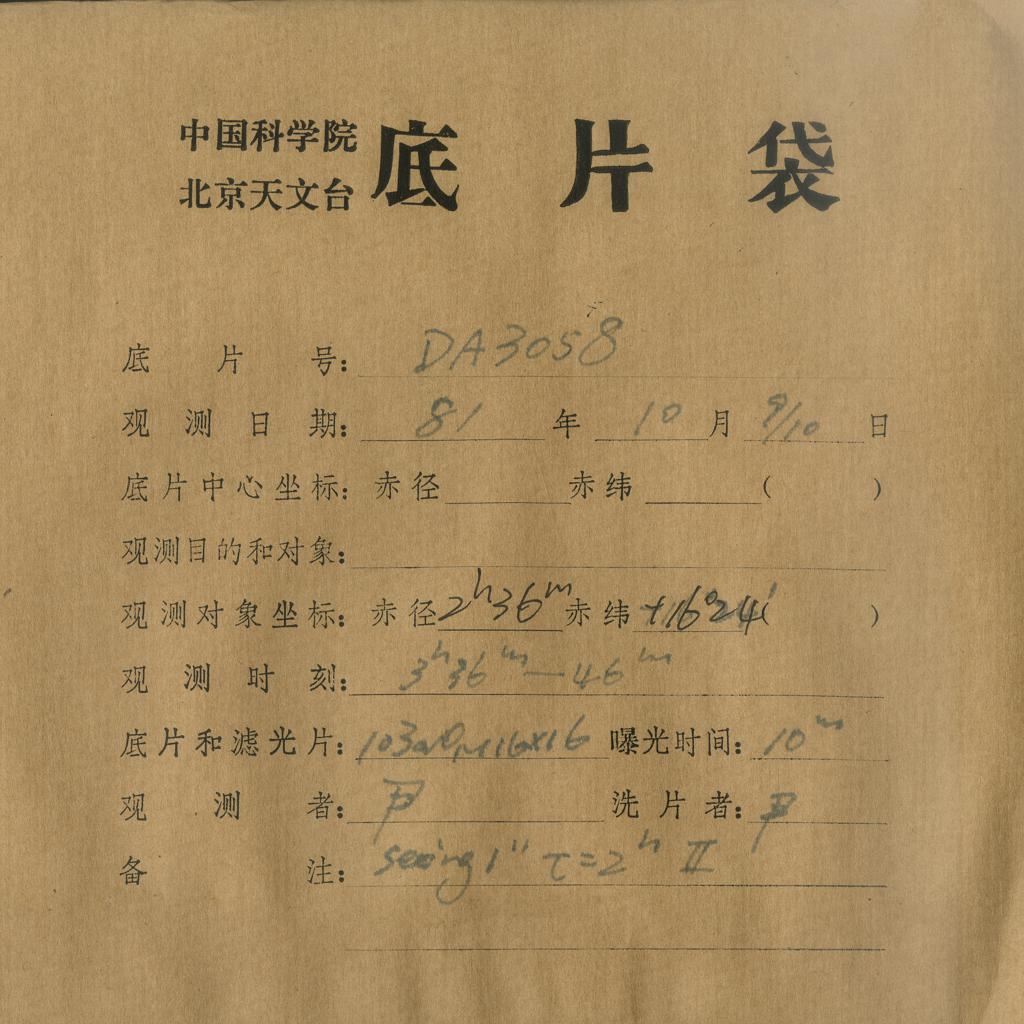 中国科学院
北京天文台
底片袋
底片号: DA3058
观测日期: 81 年 10 月 9/10 日
底片中心坐标: 赤径 赤纬 ( )
观测目的和对象:
观测对象坐标: 赤径 2h36m 赤纬 +16°24′ ( )
观测时刻: 3h36m—46m
底片和滤光片: 103aO 16x16 曝光时间: 10m
观测者: 尹 洗片者: 尹
备注: seeing 1" τ=2h II